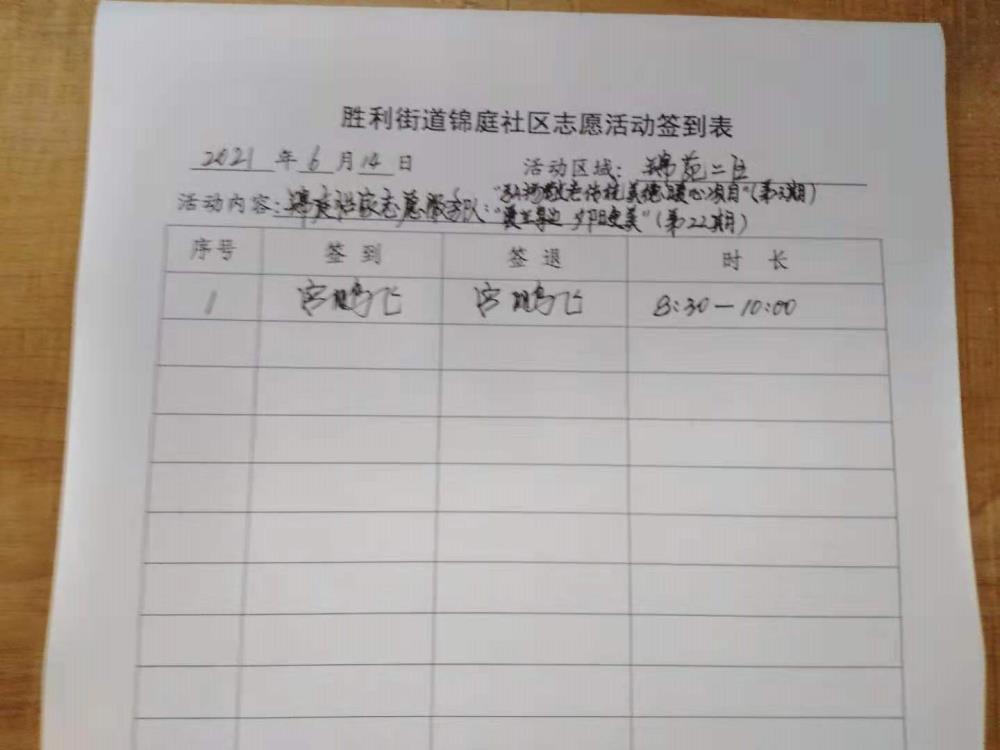 胜利街道锦庭社区志愿活动签到表
2021年6月14日 活动区域：锦苑二区
"弘扬敬老传统美德暖心项目"(第 期)
活动内容：锦庭社区志愿服务队："爱在身边 夕阳更美"(第22期)
序号 签到 签退 时长
1 宫鹏飞 宫鹏飞 8:30—10:00